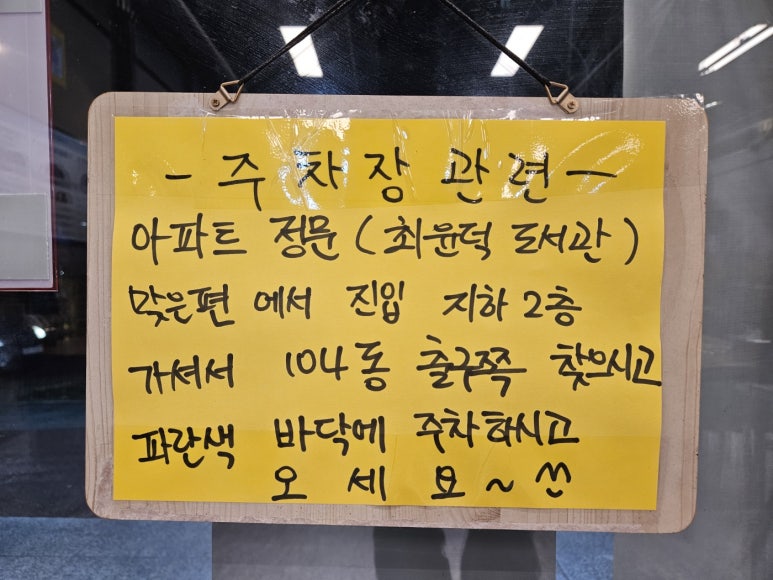 - 주 차 장 관 련 -
아파트 정문 (최윤덕 도서관)
맞은편 에서 진입 지하 2층
가셔서 104동 출구쪽 찾으시고
파란색 바닥에 주차하시고
오 세 요~ ^^